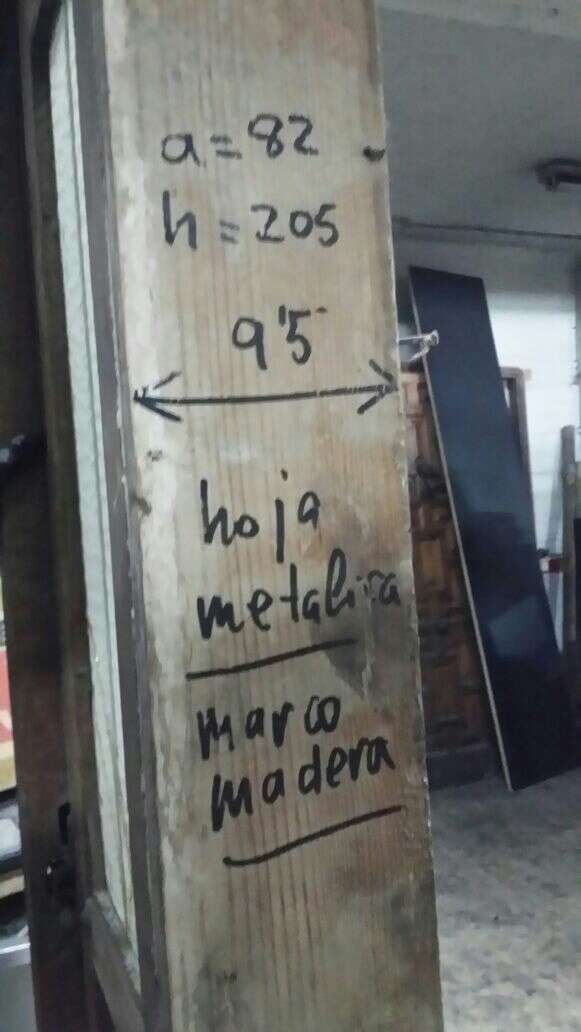 a = 82
h = 205
9'5
hoja
metalica
marco
madera